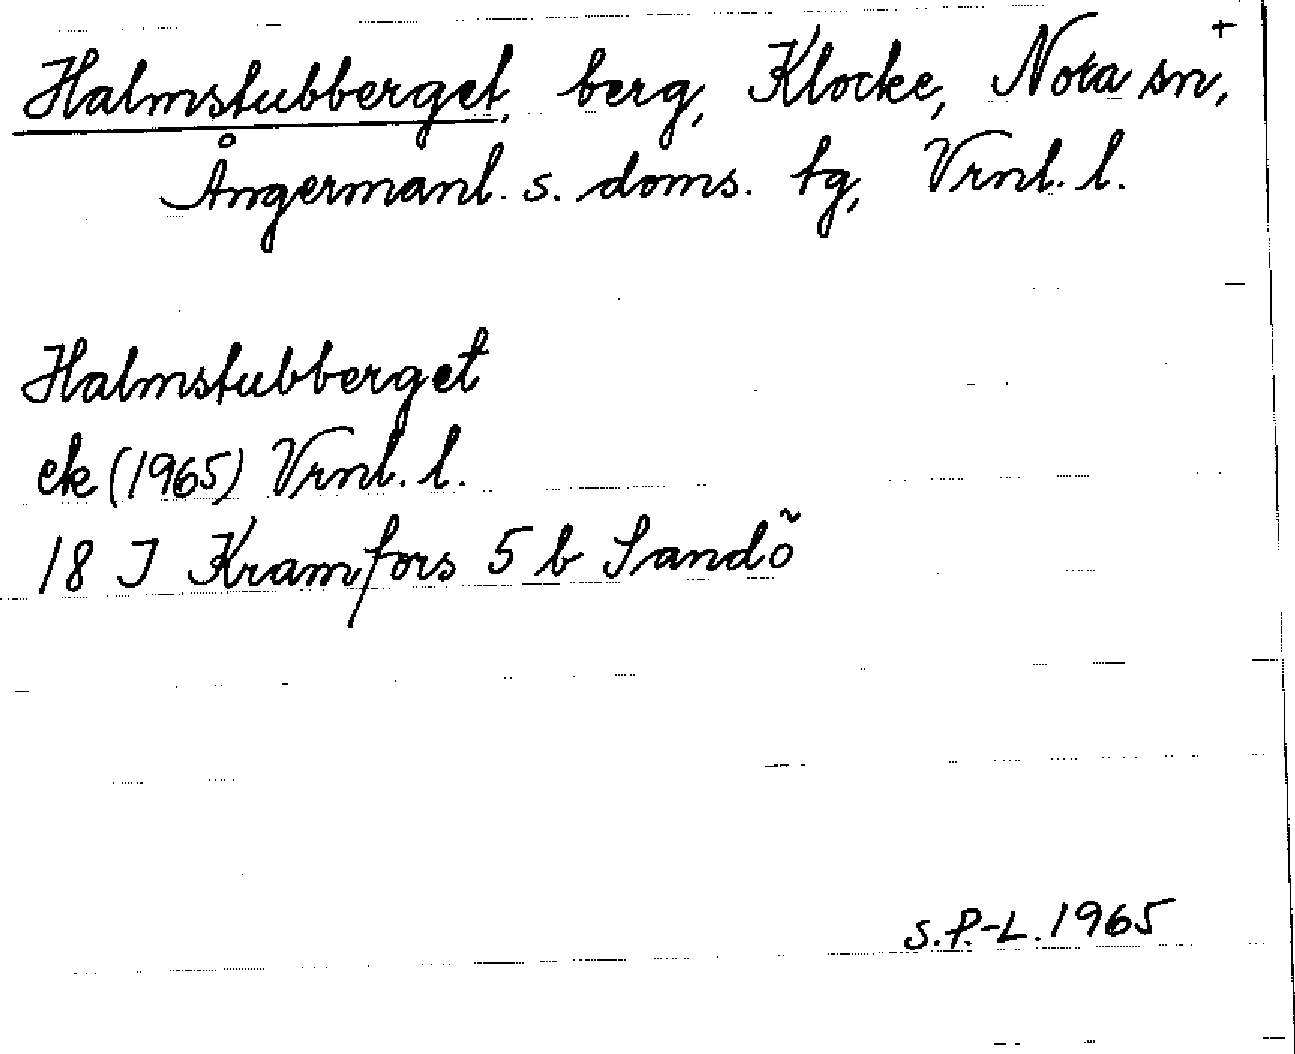 Halmstubberget, berg, Klocke, Nora sn, +
Ångermanl. s. doms. tg, Vrnl. l.
Halmstubberget
ek (1965) Vrnl. l.
18 J Kramfors 5 b Sandö
S.P.-L. 1965